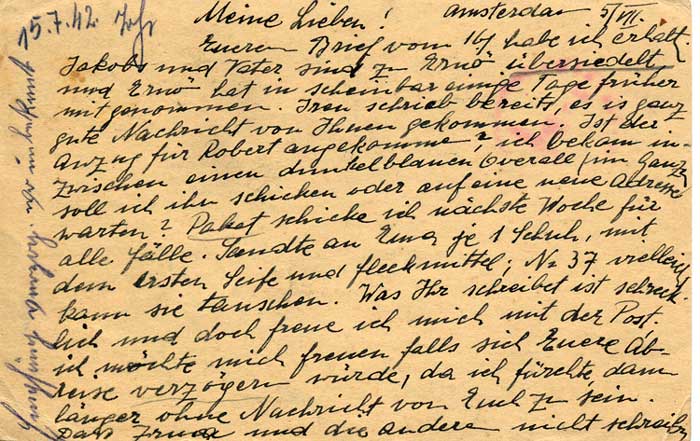 15.7.42.
Meine Lieben! Amsterdam 5/VII.
Eueren Brief vom 16/ habe ich erhalt
Jakobs und Vater sind zu Ernö übersiedelt
und Ernö hat in scheinbar einige Tage früher
mitgenommen. Iren schrieb bereits, es is ganz
gute Nachricht von Ihnen gekommen. Ist der
Anzug für Robert angekomme? ich bekam in-
zwischen einen dunkelblauen Overall (im Ganz
soll ich ihn schicken oder auf eine neue Adresse
warten? Paket schicke ich nächste Woche für
alle fälle. Sandte an Erna je 1 Schuh, mit
dem ersten Seife und fleckmittel; No 37 villeich
kann sie tauschen. Was Ihr schreibet ist schreck
lich und doch freue ich mich mit der Post.
ich möchte mich freuen falls sich Euere Ab-
reise verzögern würde, da ich fürchte, dann
länger ohne Nachricht von Euch zu sein.
Dass Erna und die anderen nicht schreiben